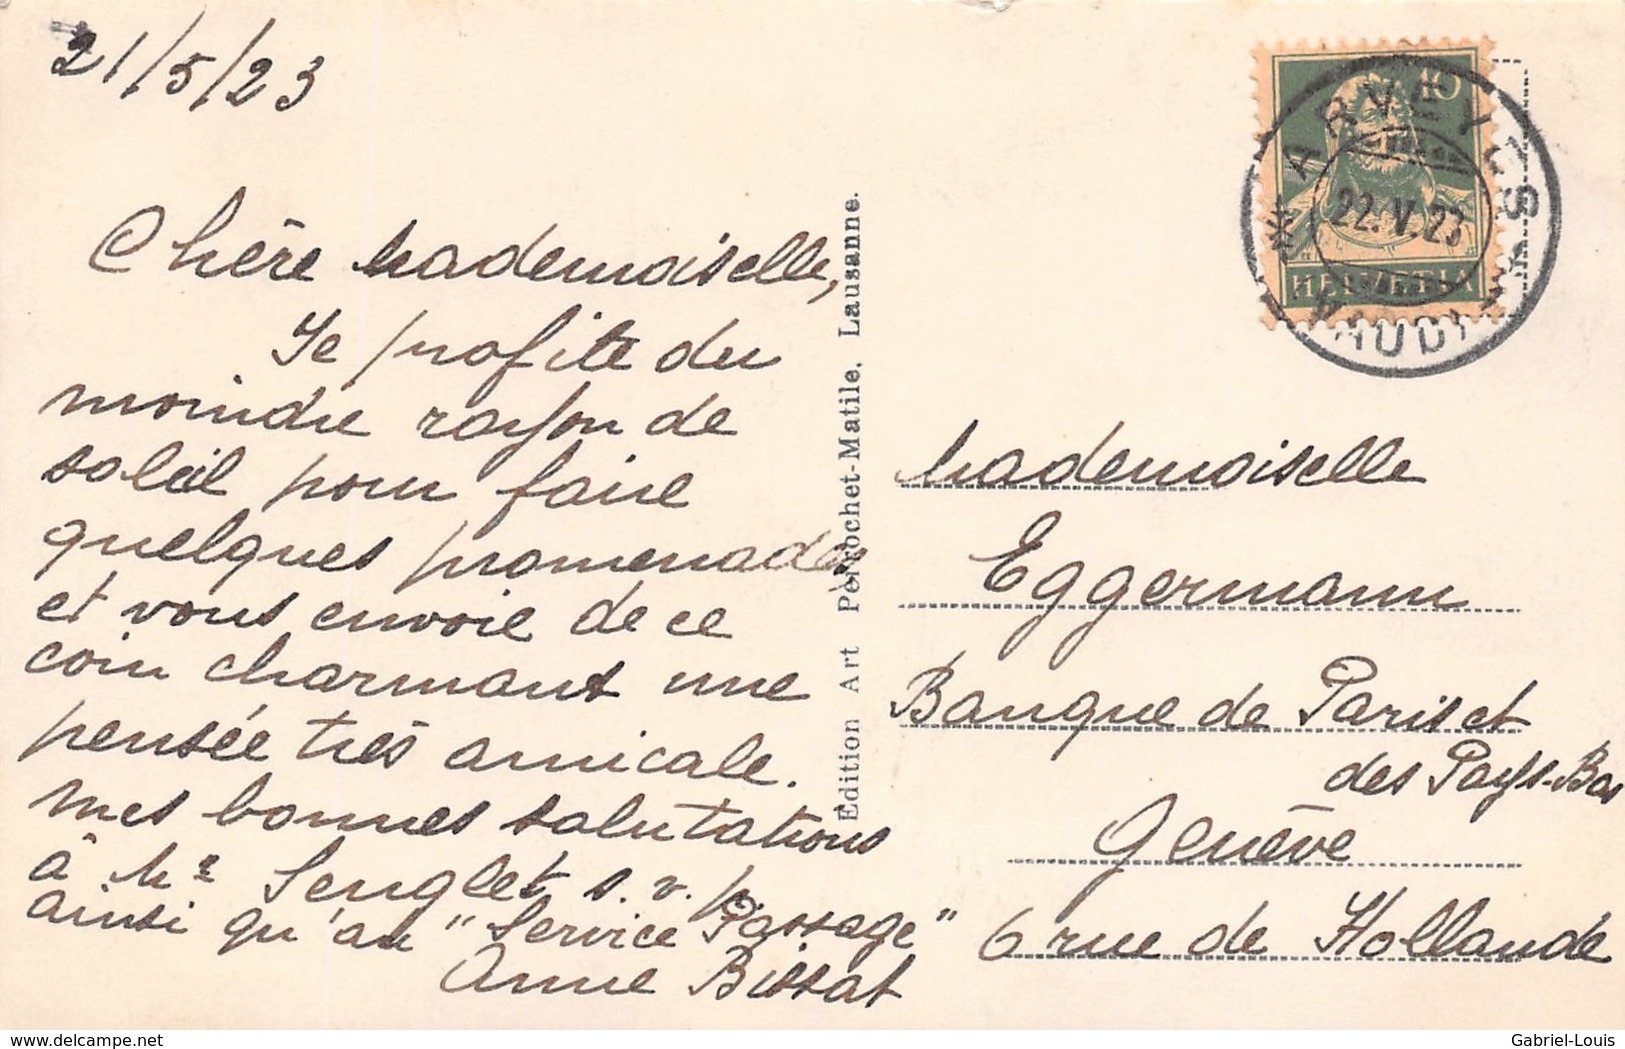 21/5/23
Chère Mademoiselle,
Je profite du
moindre rayon de
soleil pour faire
quelques promenades
et vous envoie de ce
coin charmant une
pensée très amicale.
mes bonnes salutations
à Mr Senglet s.v.p.
ainsi qu'au "Service Passage"
Anne Bissat
Edition Art Perrochet-Matile, Lausanne.
10
HELVETIA
ARVEYES
22.V.23
(VAUD)
Mademoiselle
Eggermann
Banque de Paris et
des Pays-Bas
Genève
6 rue de Hollande
delcampe.net
Gabriel-Louis